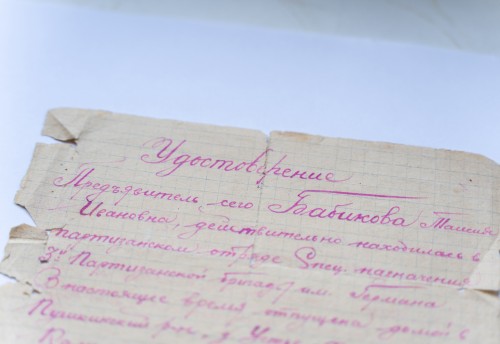 Удостоверение
Предъявитель сего Бабикова Таисия
Ивановна, действительно находилась в
партизанском отряде Спец. назначения
3й Партизанской бригады им. Германа
В настоящее время отпущена домой в
Пушкинский р-н, д.